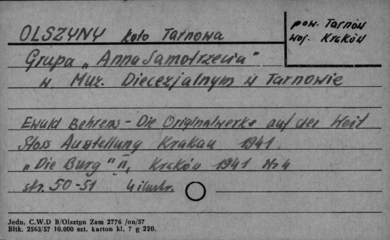 OLSZYNY koło Tarnowa
pow. Tarnów
woj. Kraków
Grupa „Anna Samotrzecia"
w Muz. Diecezjalnym w Tarnowie
Ewald Behrens - Die Originalwerke auf der Veit
Stoss Austellung Krakau 1941.
„Die Burg" II, Kraków 1941 Nr 4
str. 50-51 4 ilustr.
Jedn. C.W.D B/Olsztyn Zam 2776 /on/57
Bltk. 2563/57 10.000 szt. karton kl. 7 g 220.